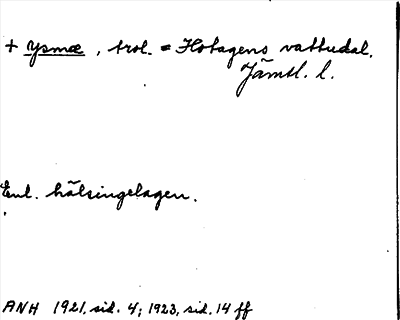 + Ysmæ, trol. = Hotagens vattudal.
Jämtl. l.
Enl. hälsingelagen.
ANH 1921, sid. 4; 1923, sid. 14 ff